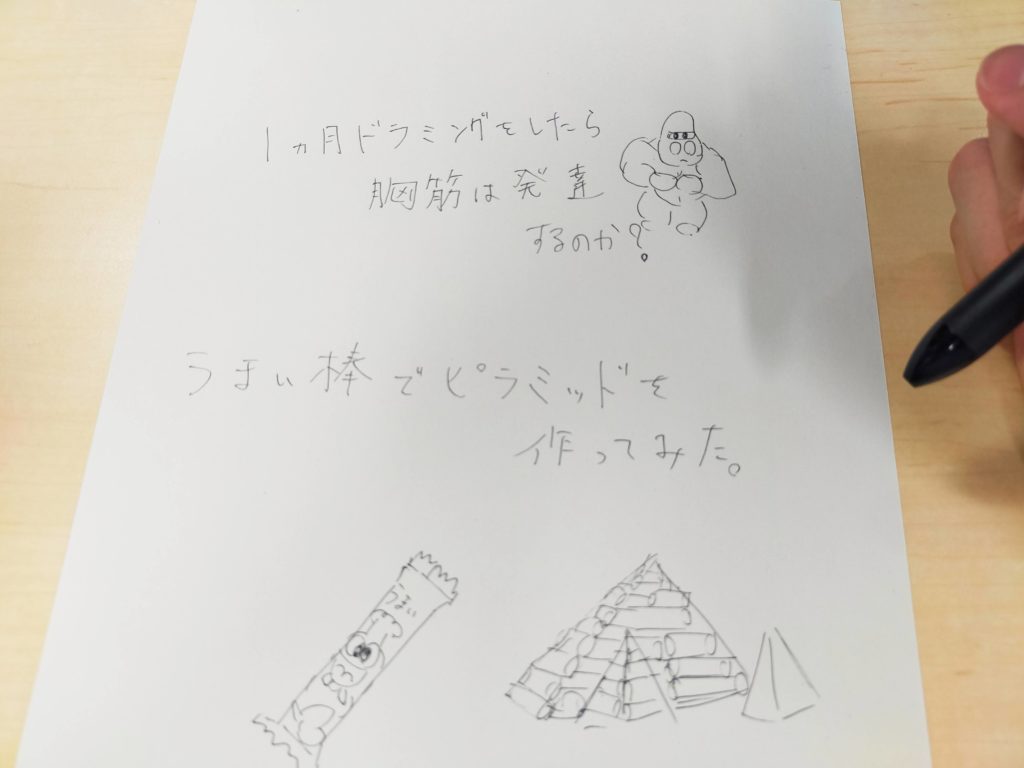 1ヵ月ドラミングをしたら
胸筋は発達
するのか?
うまい棒でピラミッドを
作ってみた。
うまい